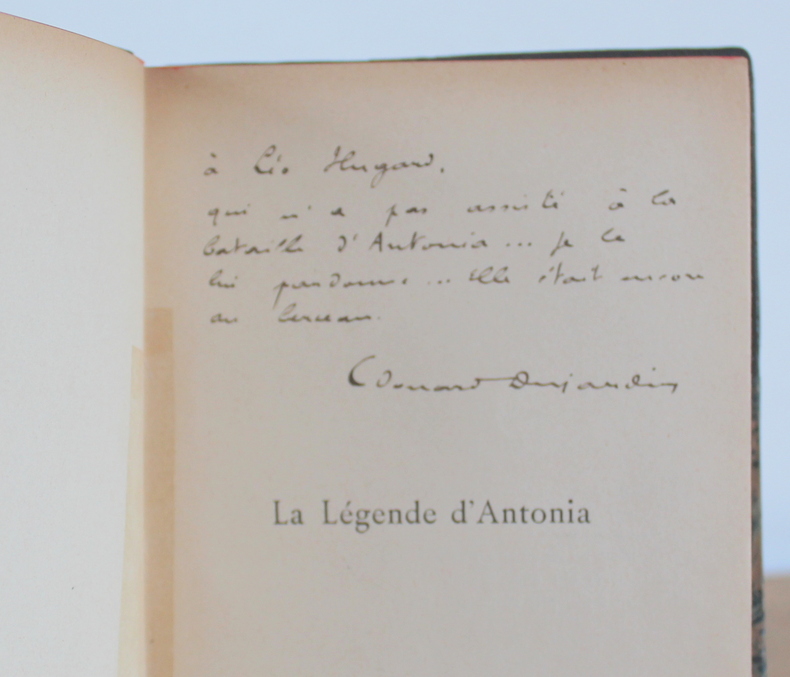 à Léo Hugard,
qui n'a pas assisté à la
bataille d'Antonia... je le
lui pardonne... Elle était encore
au berceau.
Edouard Dujardin
La Légende d'Antonia